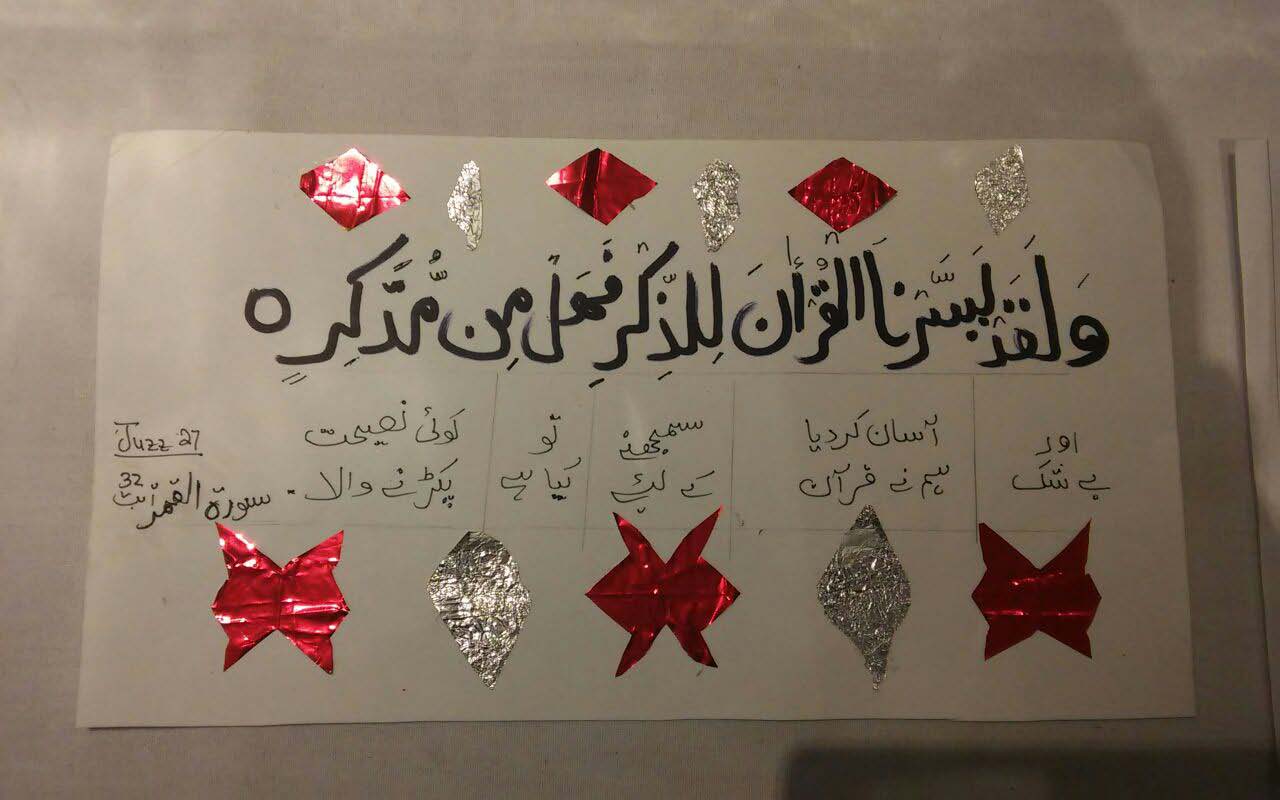 وَلَقَدْ يَسَّرْنَا الْقُرْأٰنَ لِلذِّكْرِ فَهَلْ مِن مُّدَّكِرٍ ○
اور بے شک
آسان کردیا ہم نے قرآن
سمجھنے کے لیے
تو کیا ہے
کوئی نصیحت پکڑنے والا۔
Juzz 27
سورة القمر آیت 32